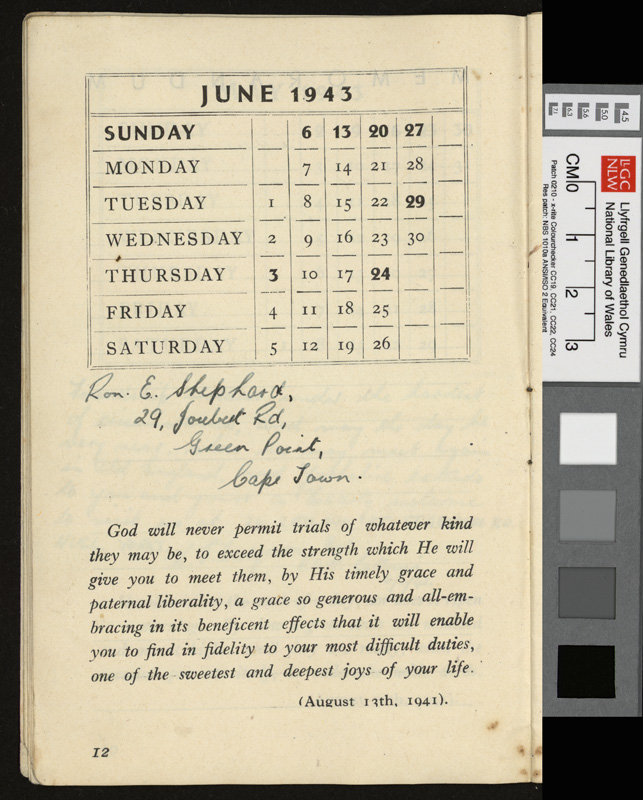 JUNE 1943
SUNDAY 6 13 20 27
MONDAY 7 14 21 28
TUESDAY 1 8 15 22 29
WEDNESDAY 2 9 16 23 30
THURSDAY 3 10 17 24
FRIDAY 4 11 18 25
SATURDAY 5 12 19 26
Ron. E. Shephard,
29, Joubert Rd,
Green Point,
Cape Town.
God will never permit trials of whatever kind
they may be, to exceed the strength which He will
give you to meet them, by His timely grace and
paternal liberality, a grace so generous and all-em-
bracing in its beneficent effects that it will enable
you to find in fidelity to your most difficult duties,
one of the sweetest and deepest joys of your life.
(August 13th, 1941).
12
LlGC
NLW
Llyfrgell Genedlaethol Cymru
National Library of Wales
CM 0 1 2 3
Patch 0210 - x-rite Colourchecker CC19, CC21, CC22, CC24
Res patch: NBS 1010a ANSI/ISO 2 Equivalent
7.1 6.3 5.6 5.0 4.5